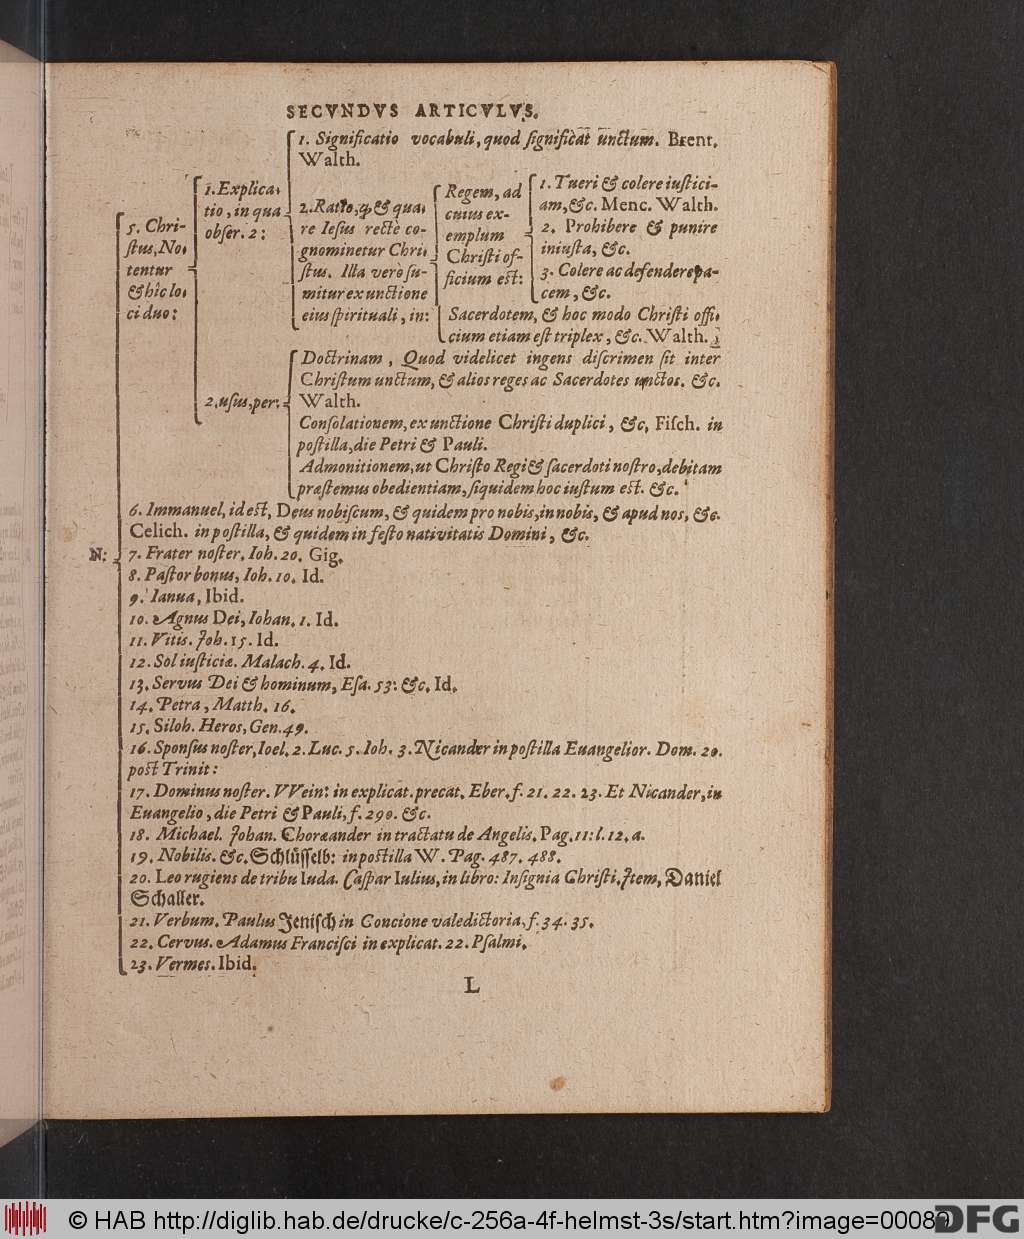 SECVNDVS ARTICVLVS.
5. Chri-
stus, No-
tentur
& hîc lo-
ci duo:
1. Explica-
tio, in qua
obser. 2:
1. Significatio vocabuli, quod significat unctum. Brent.
Walth.
2. Ratio, & qua-
re Iesus rectè co-
gnominetur Chri-
stus. Illa verò su-
mitur ex unctione
eius spirituali, in:
Regem, ad
cuius ex-
emplum
Christi of-
ficium est:
1. Tueri & colere iustici-
am, &c. Menc. Walth.
2. Prohibere & punire
iniusta, &c.
3. Colere ac defendere pa-
cem, &c.
Sacerdotem, & hoc modo Christi offi-
cium etiam est triplex, &c. Walth.
2. usus, per:
Doctrinam, Quod videlicet ingens discrimen sit inter
Christum unctum, & alios reges ac Sacerdotes unctos. &c.
Walth.
Consolationem, ex unctione Christi duplici, &c. Fisch. in
postilla, die Petri & Pauli.
Admonitionem, ut Christo Regi & sacerdoti nostro, debitam
præstemus obedientiam, siquidem hoc iustum est. &c.
N:
6. Immanuel, id est, Deus nobiscum, & quidem pro nobis, in nobis, & apud nos, &c.
Celich. in postilla, & quidem in festo nativitatis Domini, &c.
7. Frater noster. Ioh. 20. Gig.
8. Pastor bonus, Ioh. 10. Id.
9. Ianua, Ibid.
10. Agnus Dei, Iohan. 1. Id.
11. Vitis. Joh. 15. Id.
12. Sol iusticiæ. Malach. 4. Id.
13. Servus Dei & hominum, Esa. 53. &c. Id.
14. Petra, Matth. 16.
15. Siloh. Heros, Gen. 49.
16. Sponsus noster, Ioel. 2. Luc. 5. Ioh. 3. Nicander in postilla Euangelior. Dom. 20.
post Trinit:
17. Dominus noster. VVein: in explicat. precat. Eber. f. 21. 22. 23. Et Nicander, in
Euangelio, die Petri & Pauli, f. 290. &c.
18. Michael. Johan. Choræander in tractatu de Angelis. Pag. 11: l. 12. a.
19. Nobilis. &c. Schlüsselb: in postilla W. Pag. 487. 488.
20. Leo rugiens de tribu Iuda. Caspar Iulius, in libro: Insignia Christi. Item, Daniel
Schaller.
21. Verbum. Paulus Jenisch in Concione valedictoria, f. 34. 35.
22. Cervus. Adamus Francisci in explicat. 22. Psalmi.
23. Vermes. Ibid.
L
© HAB http://diglib.hab.de/drucke/c-256a-4f-helmst-3s/start.htm?image=00089
DFG